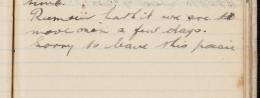 Rumour hath it we are to
move on in a few days.
Sorry to leave this